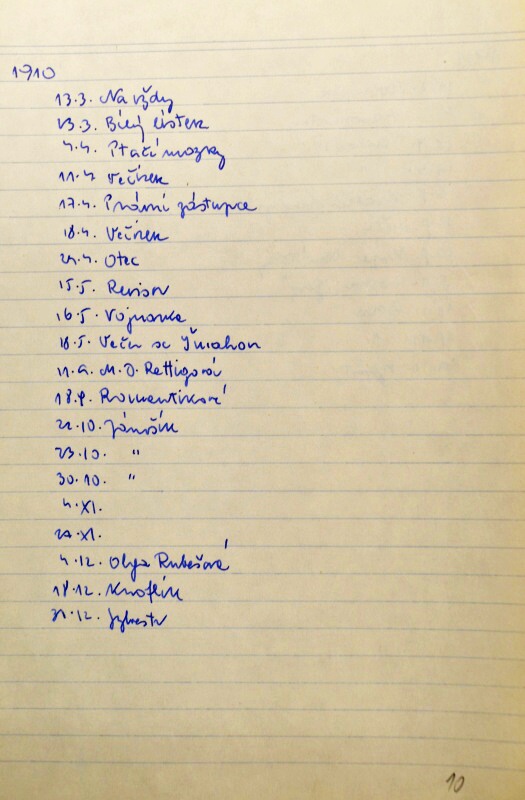 1910
13.3. Na vždy
13.3. Bílý lístek
4.4. Ptačí mozky
11.4. Večírek
17.4. Právní zástupce
18.4. Večírek
24.4. Otec
15.5. Revisor
16.5. Vojnarka
18.5. Večer se
11.9. M. D. Rettigová
18.9. Romantikové
22.10. Jánošík
23.10. "
30.10. "
4.XI.
20.XI.
4.12. Olga Rubešová
18.12. Knoflík
31.12. Sylvestr
10